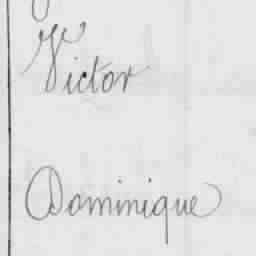 Victor
Dominique